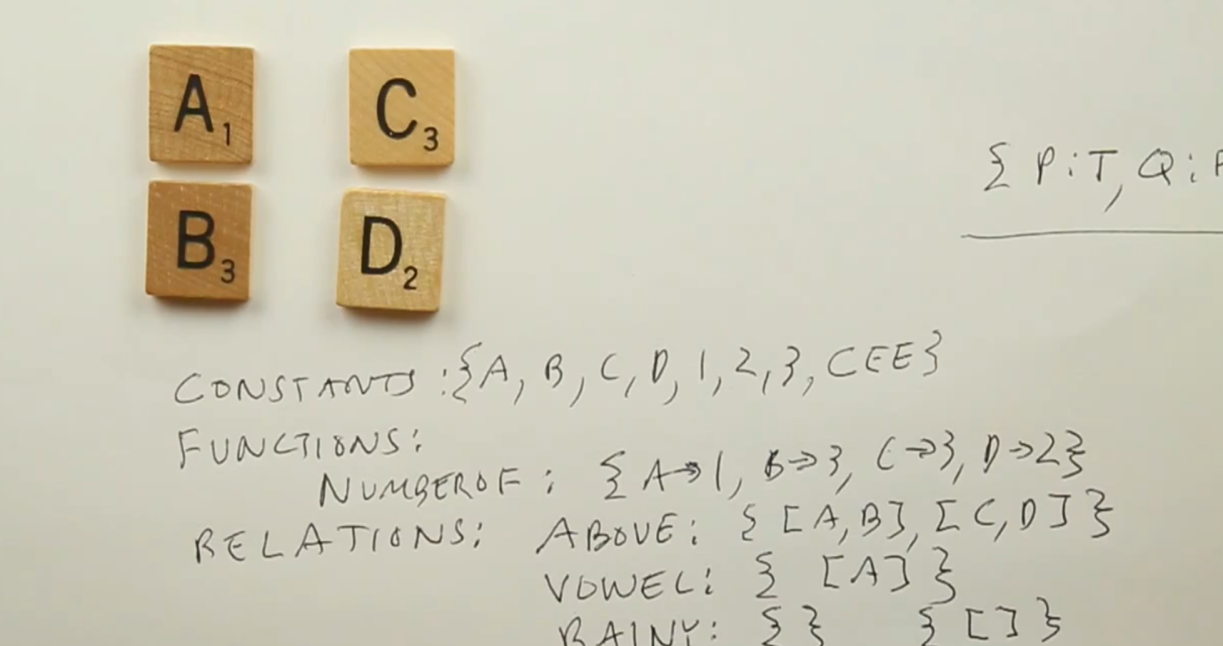 A1 C3
B3 D2
{ P:T, Q:
CONSTANTS:{A, B, C, D, 1, 2, 3, CEE}
FUNCTIONS:
NUMBEROF: {A→1, B→3, C→3, D→2}
RELATIONS: ABOVE: {[A,B], [C,D]}
VOWEL: {[A]}
RAINY: {} {[]}